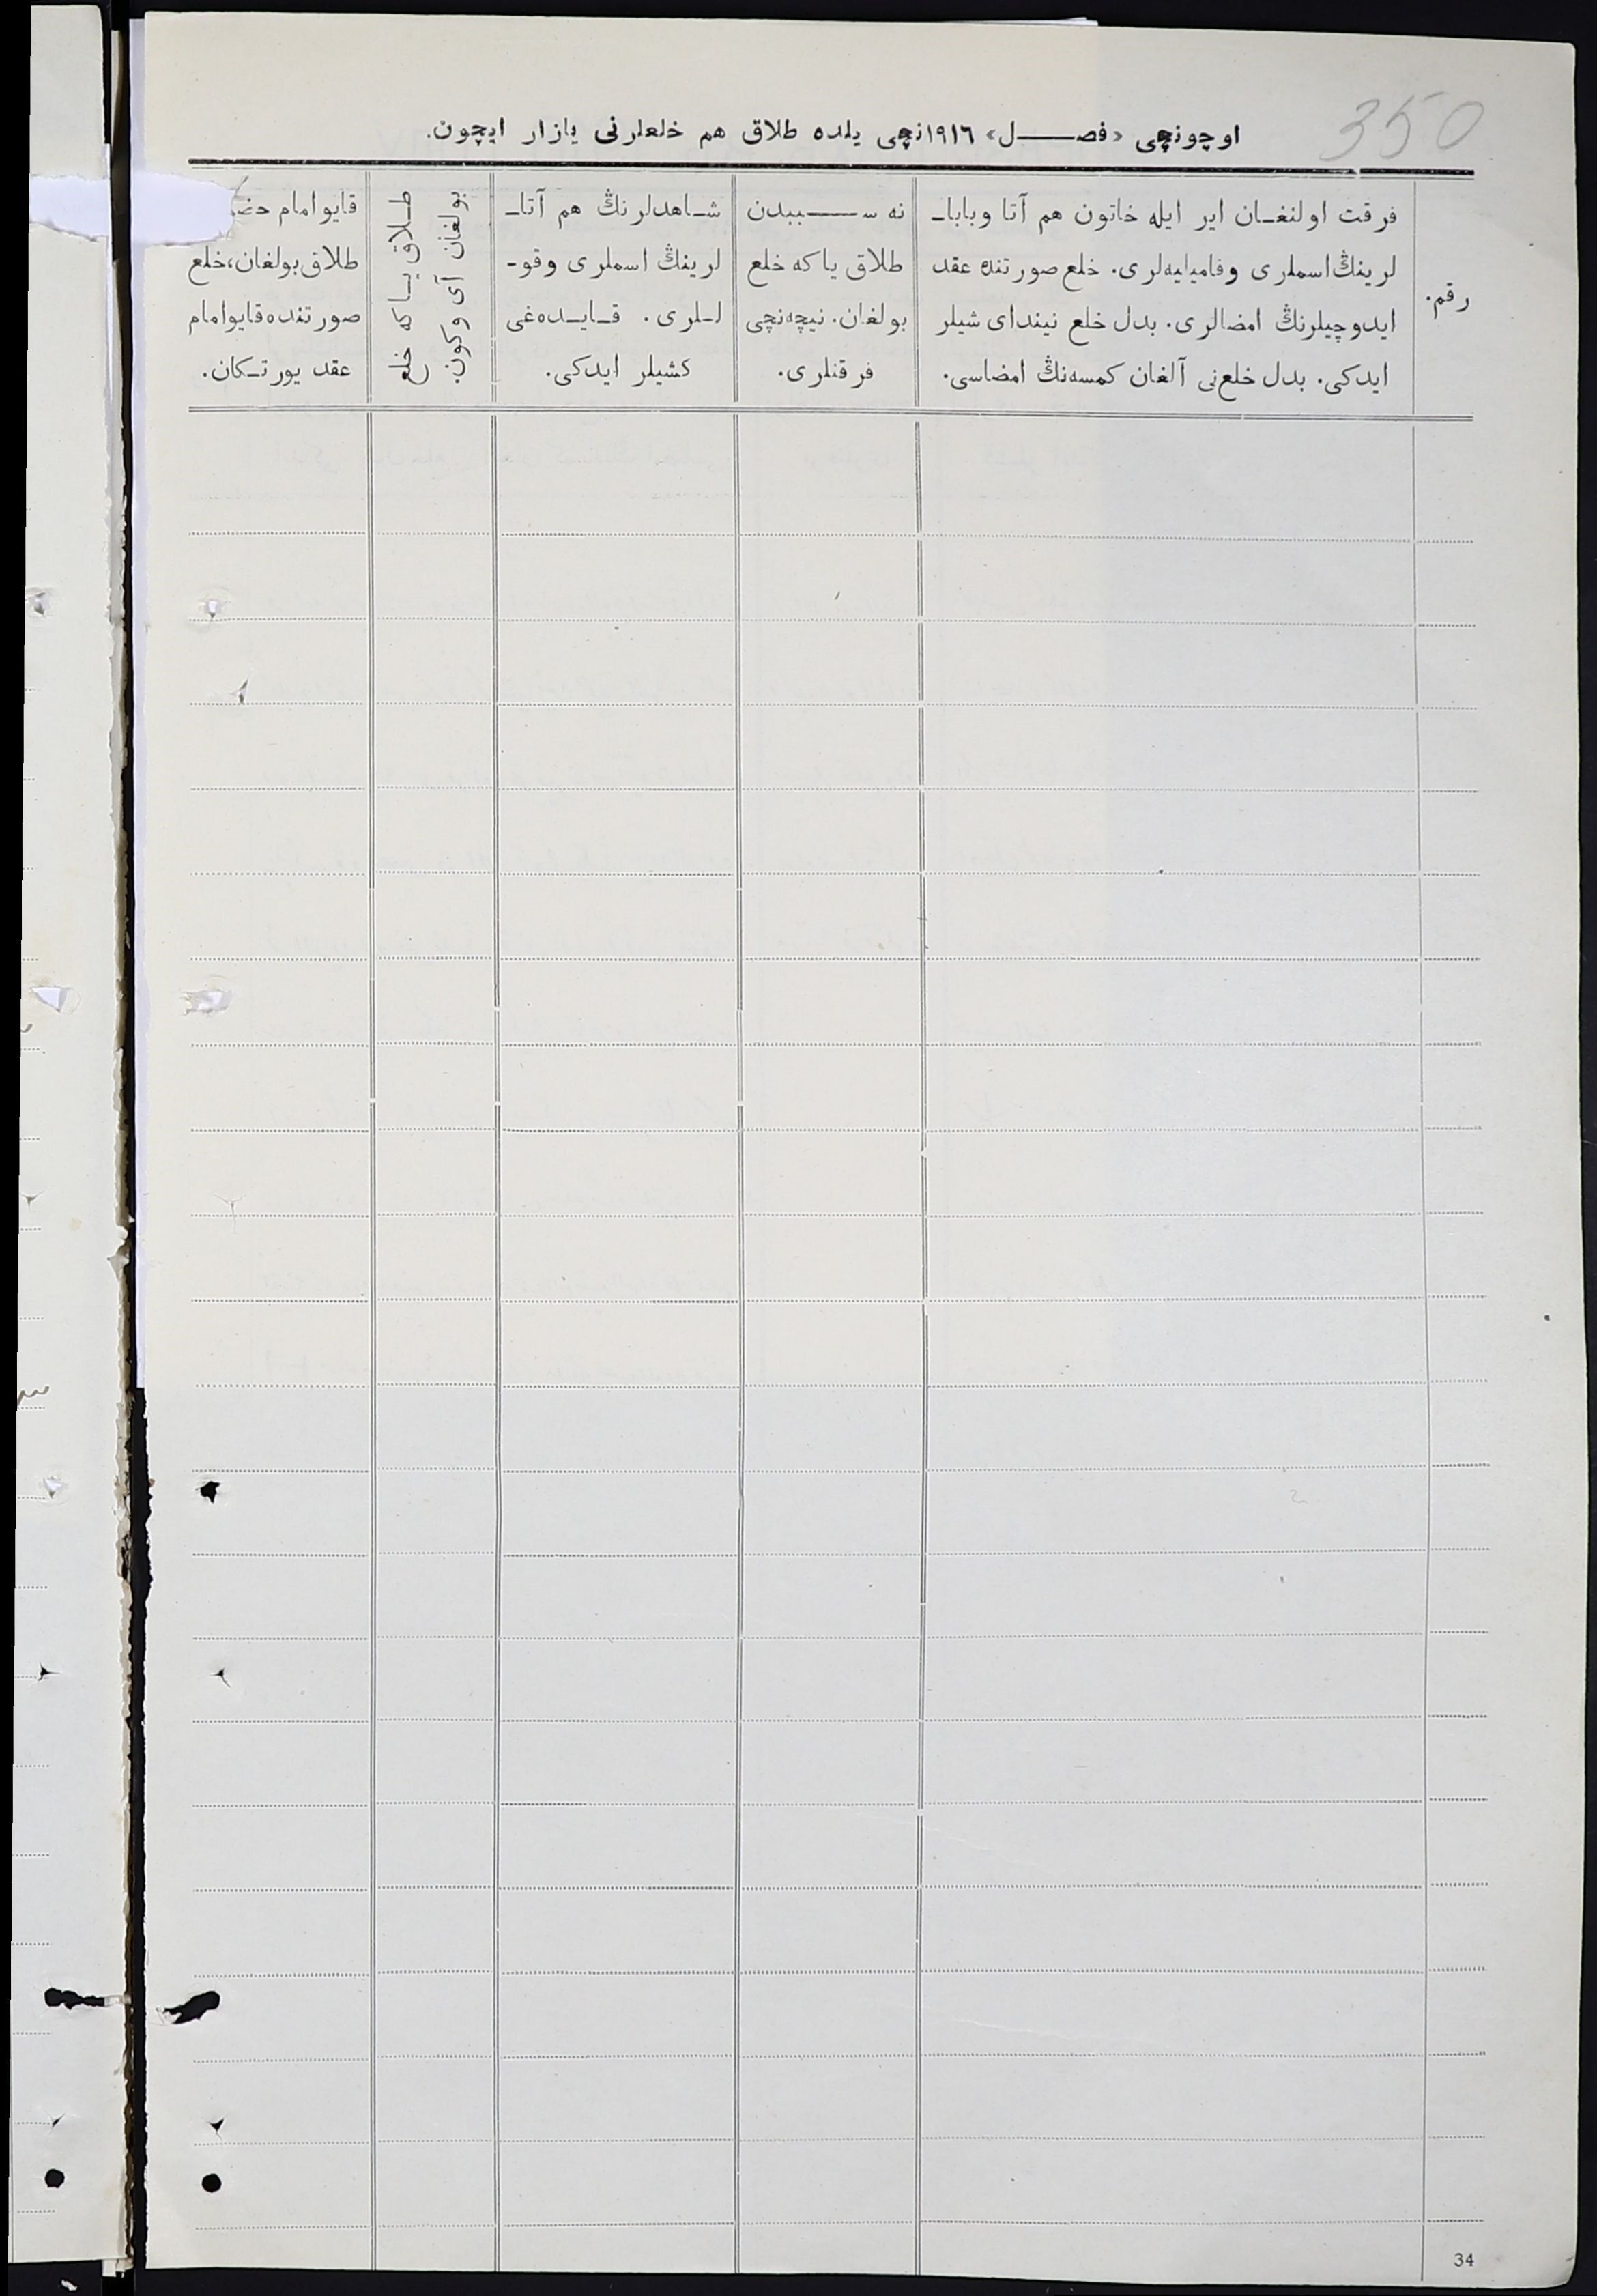 350
اوچونچی «فصل» ١٩١٦نچی يلده طلاق هم خلعلرنی يازار ايچون.
رقم.
فرقت اولنغان اير ايله خاتون هم آتا وبابا-
لرينڭ اسملری وفاميليه‌لری. خلع صورتنده عقد
ايدوچيلرنڭ امضالری. بدل خلع نيندای شيلر
ايدكی. بدل خلعنی آلغان كمسه‌نڭ امضاسی.
نه سببدن
طلاق ياكه خلع
بولغان. نيچه‌نچی
فرقتلری.
شاهدلرنڭ هم آتا-
لرينڭ اسملری وقو-
للری. قايده‌غی
كشيلر ايدكی.
طلاق ياكه خلع
بولغان آی وكون.
قايو امام
طلاق بولغان، خلع
صورتنده قايو امام
عقد يورتكان.
34